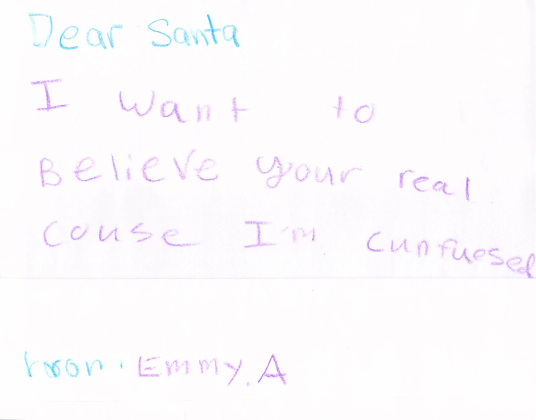 Dear Santa
I want to
Believe your real
couse I'm cunfuesed
from. Emmy.A